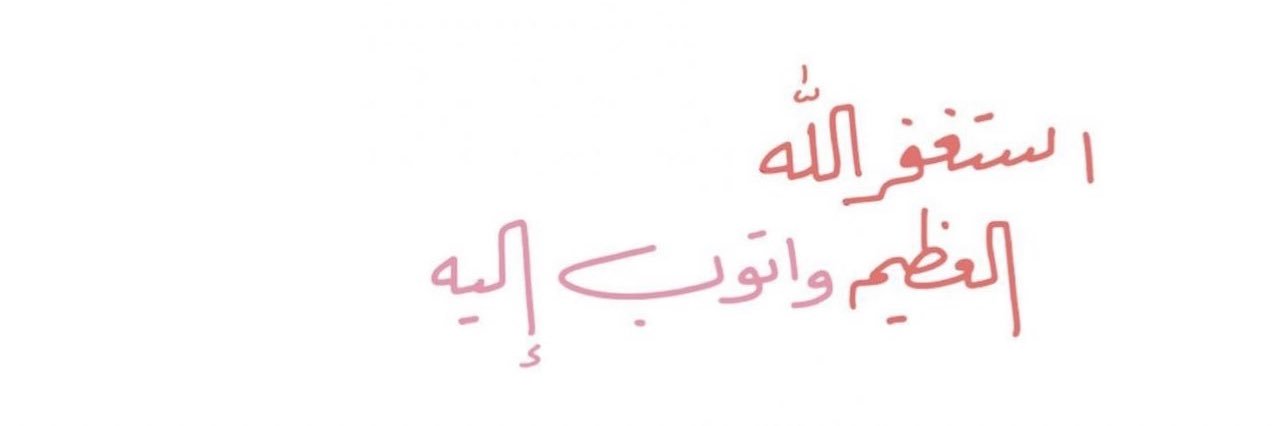 استغفر اللّٰه
العظيم واتوب إليه